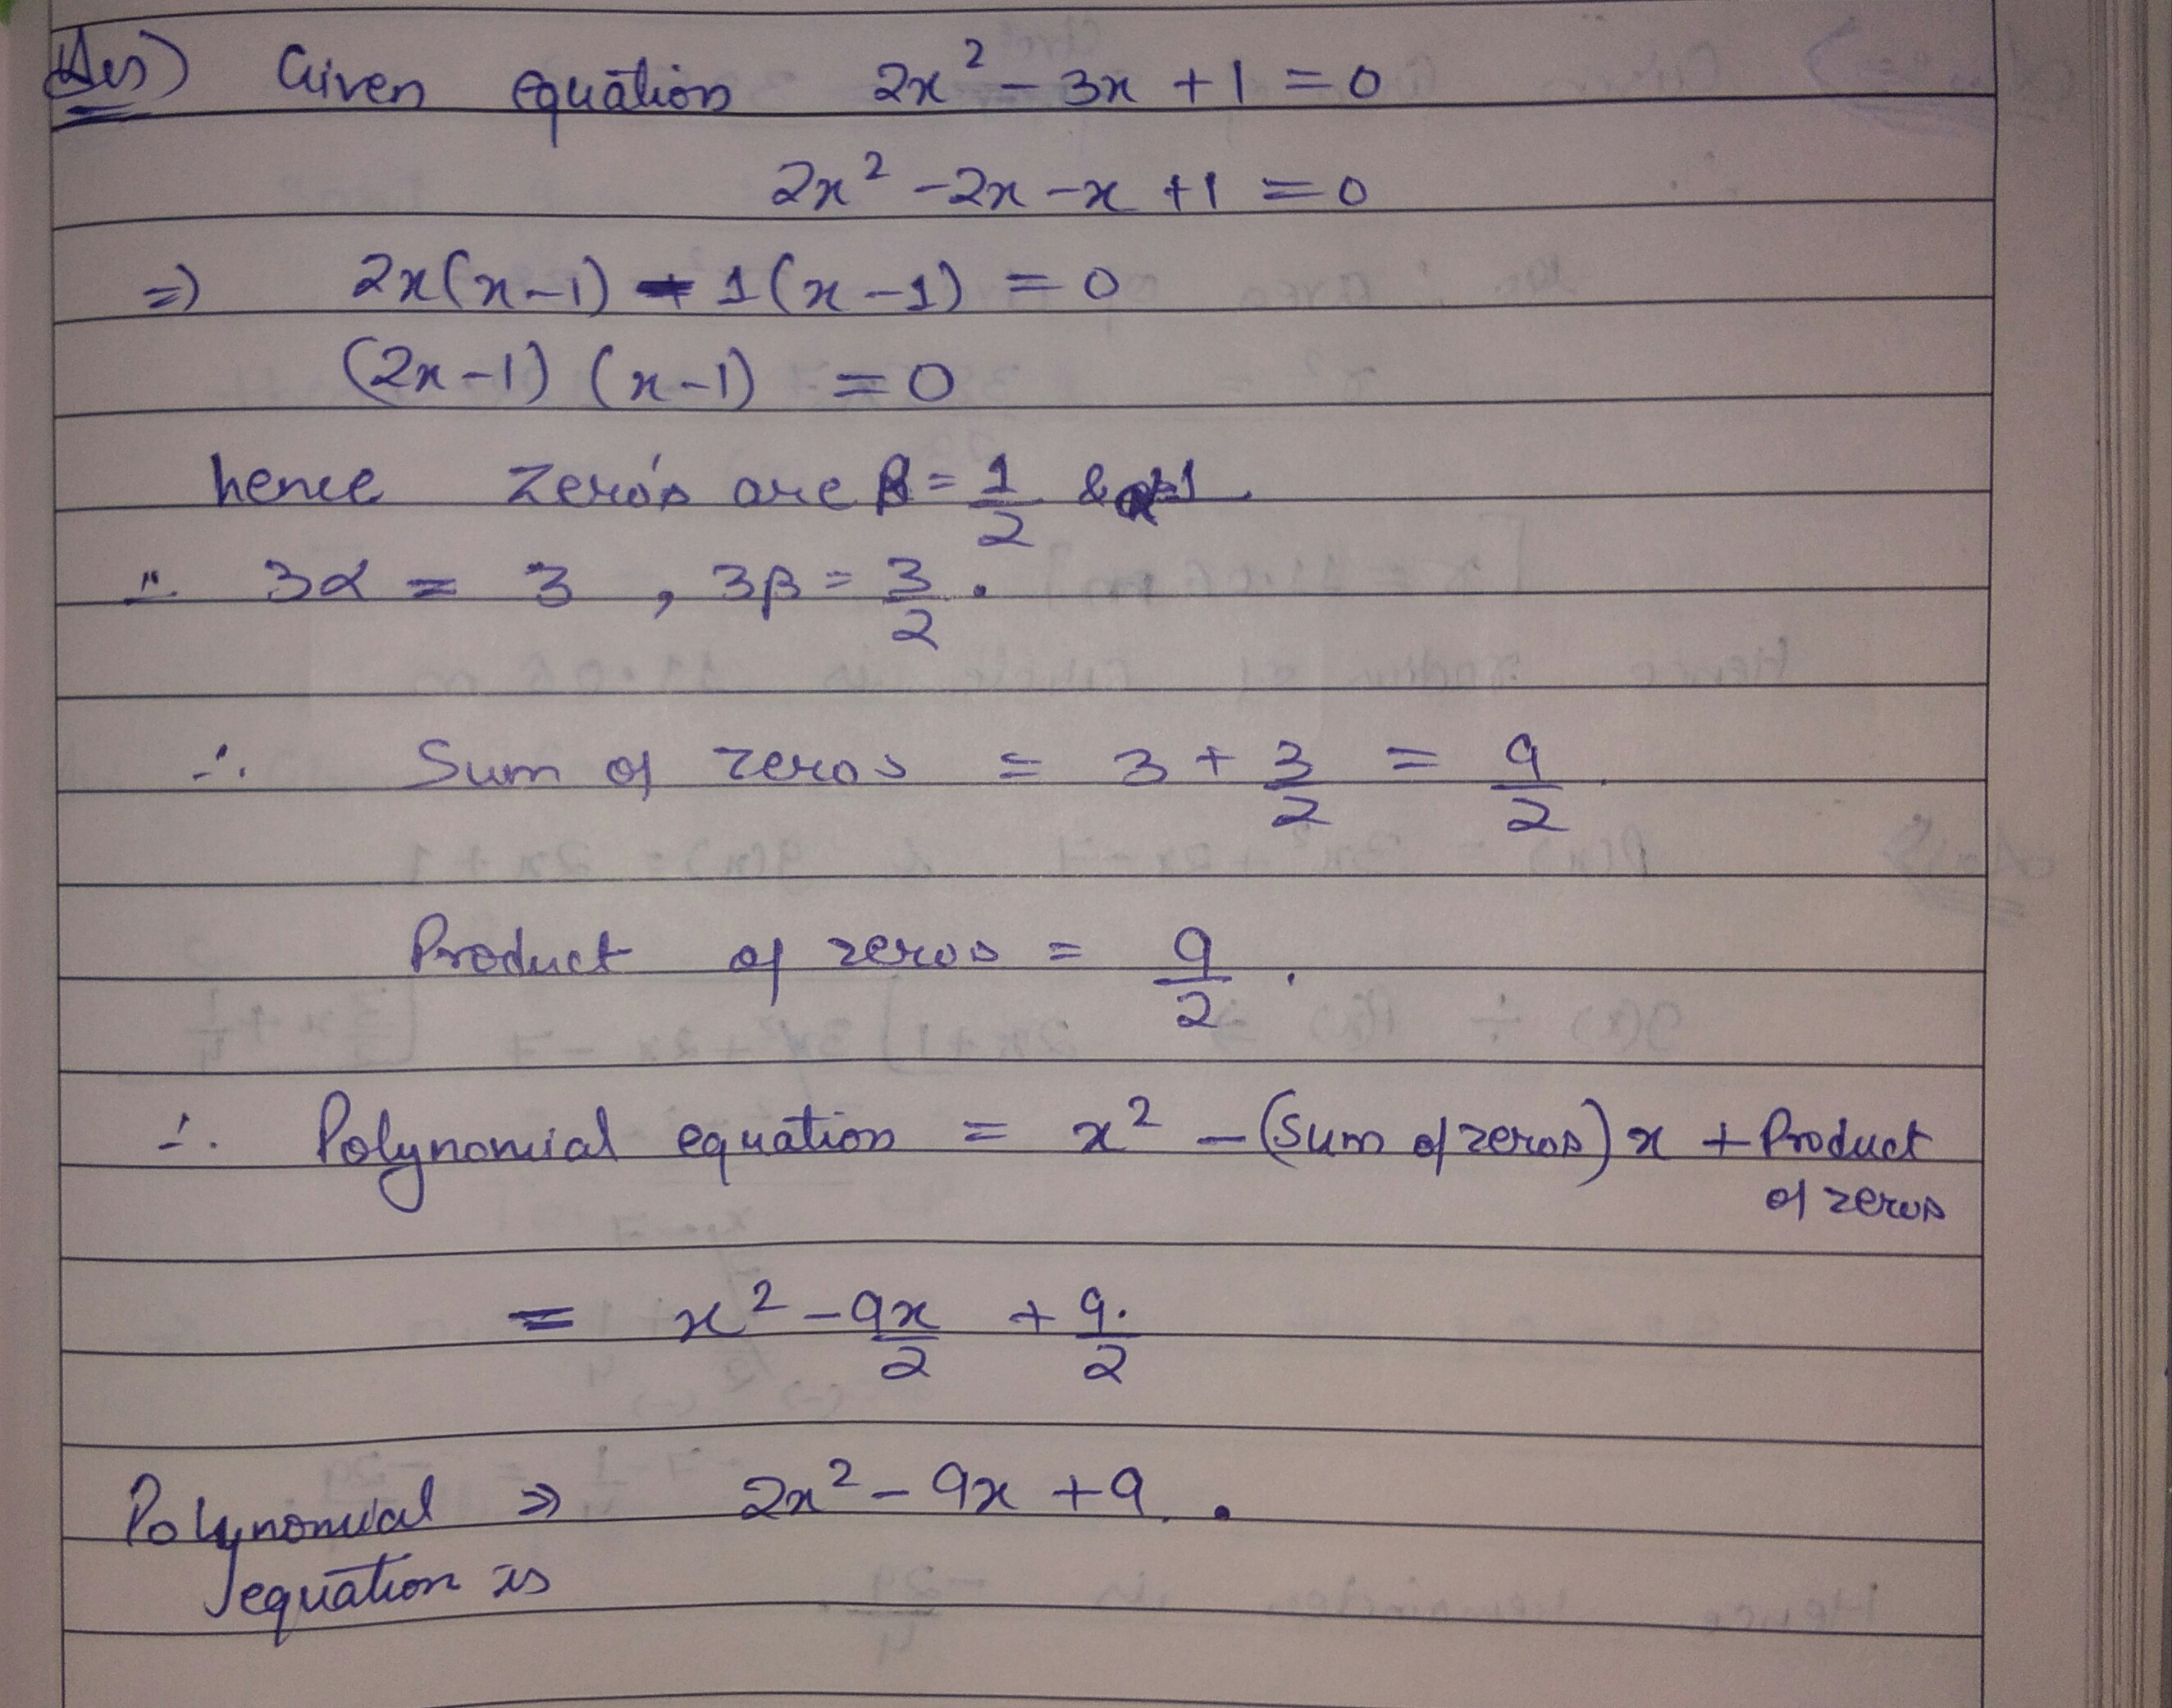 Ans) Given equation 2x² - 3x + 1 = 0
2x² - 2x - x + 1 = 0
⇒ 2x(x-1) - 1(x-1) = 0
(2x-1) (x-1) = 0
hence zero's are β = 1/2 & α=1
∴ 3α = 3 , 3β = 3/2 .
∴ Sum of zeros = 3 + 3/2 = 9/2 .
Product of zeros = 9/2 .
∴ Polynomial equation = x² - (sum of zeros) x + Product of zeros
= x² - 9x/2 + 9/2 .
Polynomial ⇒ 2x² - 9x + 9 .
equation is